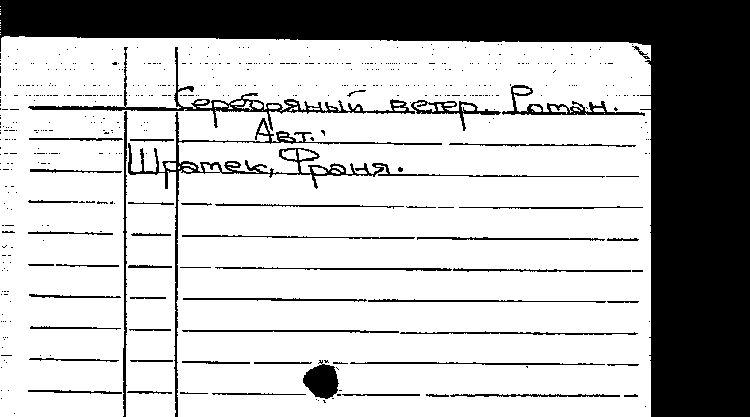 Серебряный ветер. Роман.
Авт.:
Шрамек, Франя.